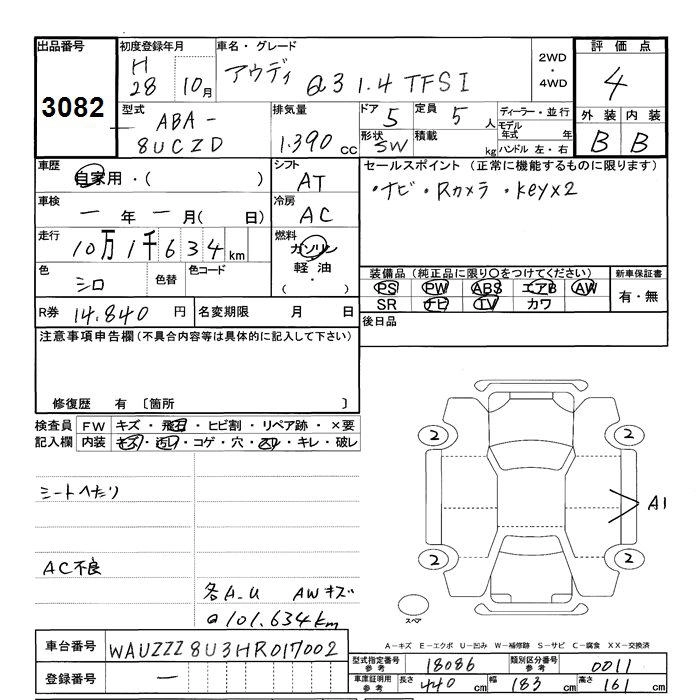 出品番号 3082
初度登録年月 H 28 10月
車名・グレード アウディ Q3 1.4 TFSI
2WD・4WD
評価点 4
型式 ABA-8UCZD
排気量 1.390 cc
ドア 5 定員 5人
形状 SW 積載 kg
ディーラー・並行
モデル年式 年
ハンドル 左・右
外装 内装
B B
車歴 自家用・( )
シフト AT
セールスポイント (正常に機能するものに限ります)
・ナビ・Rカメラ・keyx2
車検 ー年ー月( 日)
冷房 AC
走行 10万1千634km
燃料 ガソリン
軽油・( )
色 シロ 色替 色コード
装備品(純正品に限り○をつけてください)
新車保証書
PS PW ABS エアB AW
有・無
SR ナビ TV カワ
R券 14.840円 名変期限 月 日
後日品
注意事項申告欄(不具合内容等は具体的に記入して下さい)
修復歴 有 〔箇所 〕
検査員記入欄
FW キズ・飛石・ヒビ割・リペア跡・×要
内装 キズ・汚レ・コゲ・穴・スレ・キレ・破レ
シートへたり
AC不良
各A.U AWキズ
@101.634km
2
2
2
2
A1
スペア
A-キズ E-エクボ U-凹み W-補修跡 S-サビ C-腐食 XX-交換済
車台番号 WAUZZZ8U3HR017002
型式指定番号参考 18086 類別区分番号参考 0011
登録番号 ー
車庫証明用参考 長さ 440cm 幅 183cm 高さ 161cm